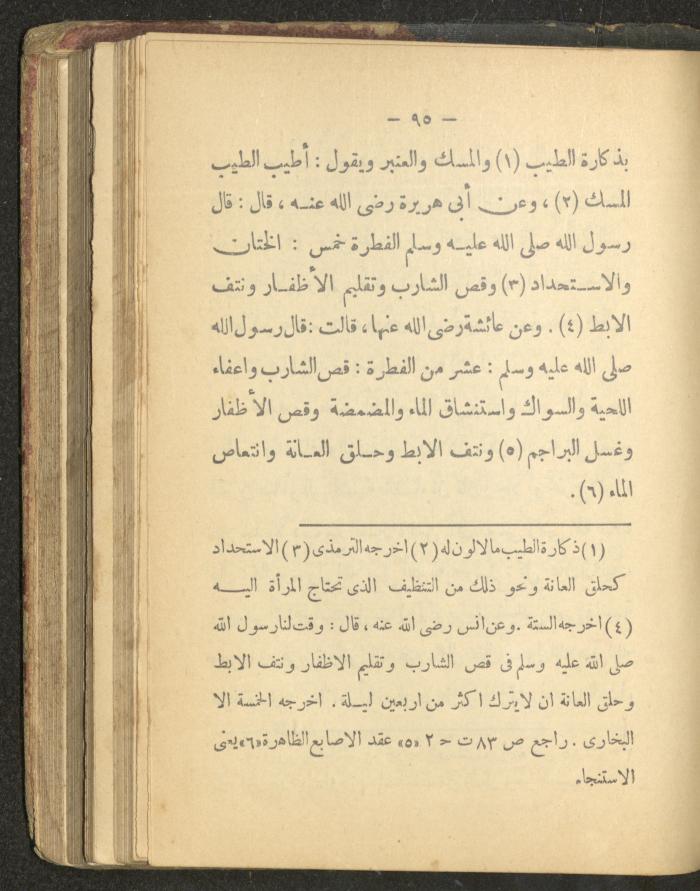 — ٩٥ —
بذكارة الطيب (١) والمسك والعنبر ويقول : أطيب الطيب
المسك (٢) ، وعن أبى هريرة رضى الله عنه ، قال : قال
رسول الله صلى الله عليه وسلم الفطرة خمس : الختان
والاستحداد (٣) وقص الشارب وتقليم الأظفار ونتف
الابط (٤) . وعن عائشة رضى الله عنها ، قالت : قال رسول الله
صلى الله عليه وسلم : عشر من الفطرة : قص الشارب واعفاء
اللحية والسواك واستنشاق الماء والمضمضة وقص الأظفار
وغسل البراجم (٥) ونتف الابط وحلق العانة وانتعاص
الماء (٦) .
(١) ذكارة الطيب مالالون له (٢) اخرجه الترمذى (٣) الاستحداد
كحلق العانة ونحو ذلك من التنظيف الذى تحتاج المرأة اليه
(٤) اخرجه الستة . وعن انس رضى الله عنه ، قال : وقت لنا رسول الله
صلى الله عليه وسلم فى قص الشارب وتقليم الاظفار ونتف الابط
وحلق العانة ان لا يترك اكثر من اربعين ليلة . اخرجه الخمسة الا
البخارى . راجع ص ٨٣ ت ح ٢ «٥» عقد الاصابع الظاهرة «٦» يعنى
الاستنجاء